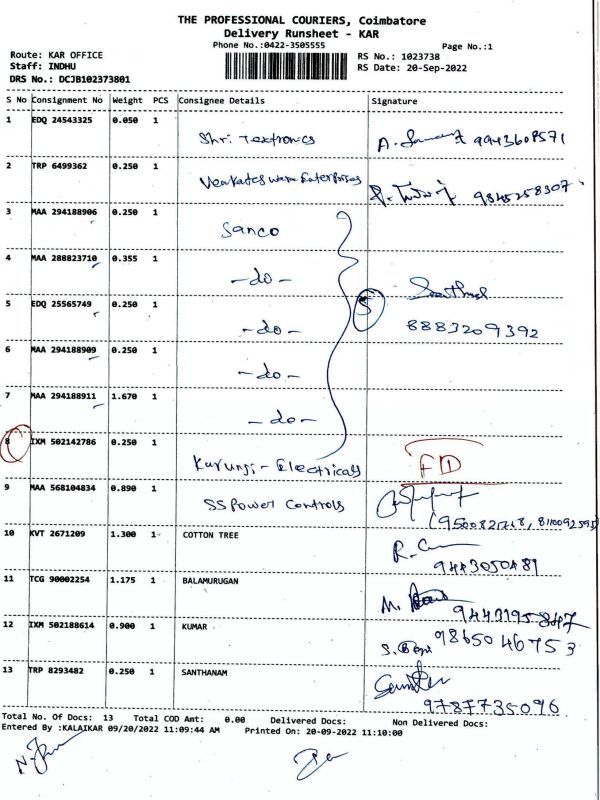 THE PROFESSIONAL COURIERS, Coimbatore
Delivery Runsheet - KAR
Phone No.:0422-3505555
Page No.:1
Route: KAR OFFICE
Staff: INDHU
DRS No.: DCJB102373801
RS No.: 1023738
RS Date: 20-Sep-2022
S No Consignment No Weight PCS Consignee Details Signature
1 EDQ 24543325 0.050 1
Shri Textronics A. 9943608571
2 TRP 6499362 0.250 1
Venkateswara Enterprises 9845258307
3 MAA 294188906 0.250 1
Sanco
4 MAA 288823710 0.355 1
-do-
5 EDQ 25565749 0.250 1
5
-do- 8883209392
6 MAA 294188909 0.250 1
-do-
7 MAA 294188911 1.670 1
-do-
8 IXM 502142786 0.250 1
Kurunji - Electricals FD
9 MAA 568104834 0.890 1
SS Power Controls
10 KVT 2671209 1.300 1 COTTON TREE
9443050481
11 TCG 90002254 1.175 1 BALAMURUGAN
M.
12 IXM 502188614 0.900 1 KUMAR
9865046753
13 TRP 8293482 0.250 1 SANTHANAM
9787735096
Total No. Of Docs: 13 Total COD Amt: 0.00 Delivered Docs: Non Delivered Docs:
Entered By :KALAIKAR 09/20/2022 11:09:44 AM Printed On: 20-09-2022 11:10:00